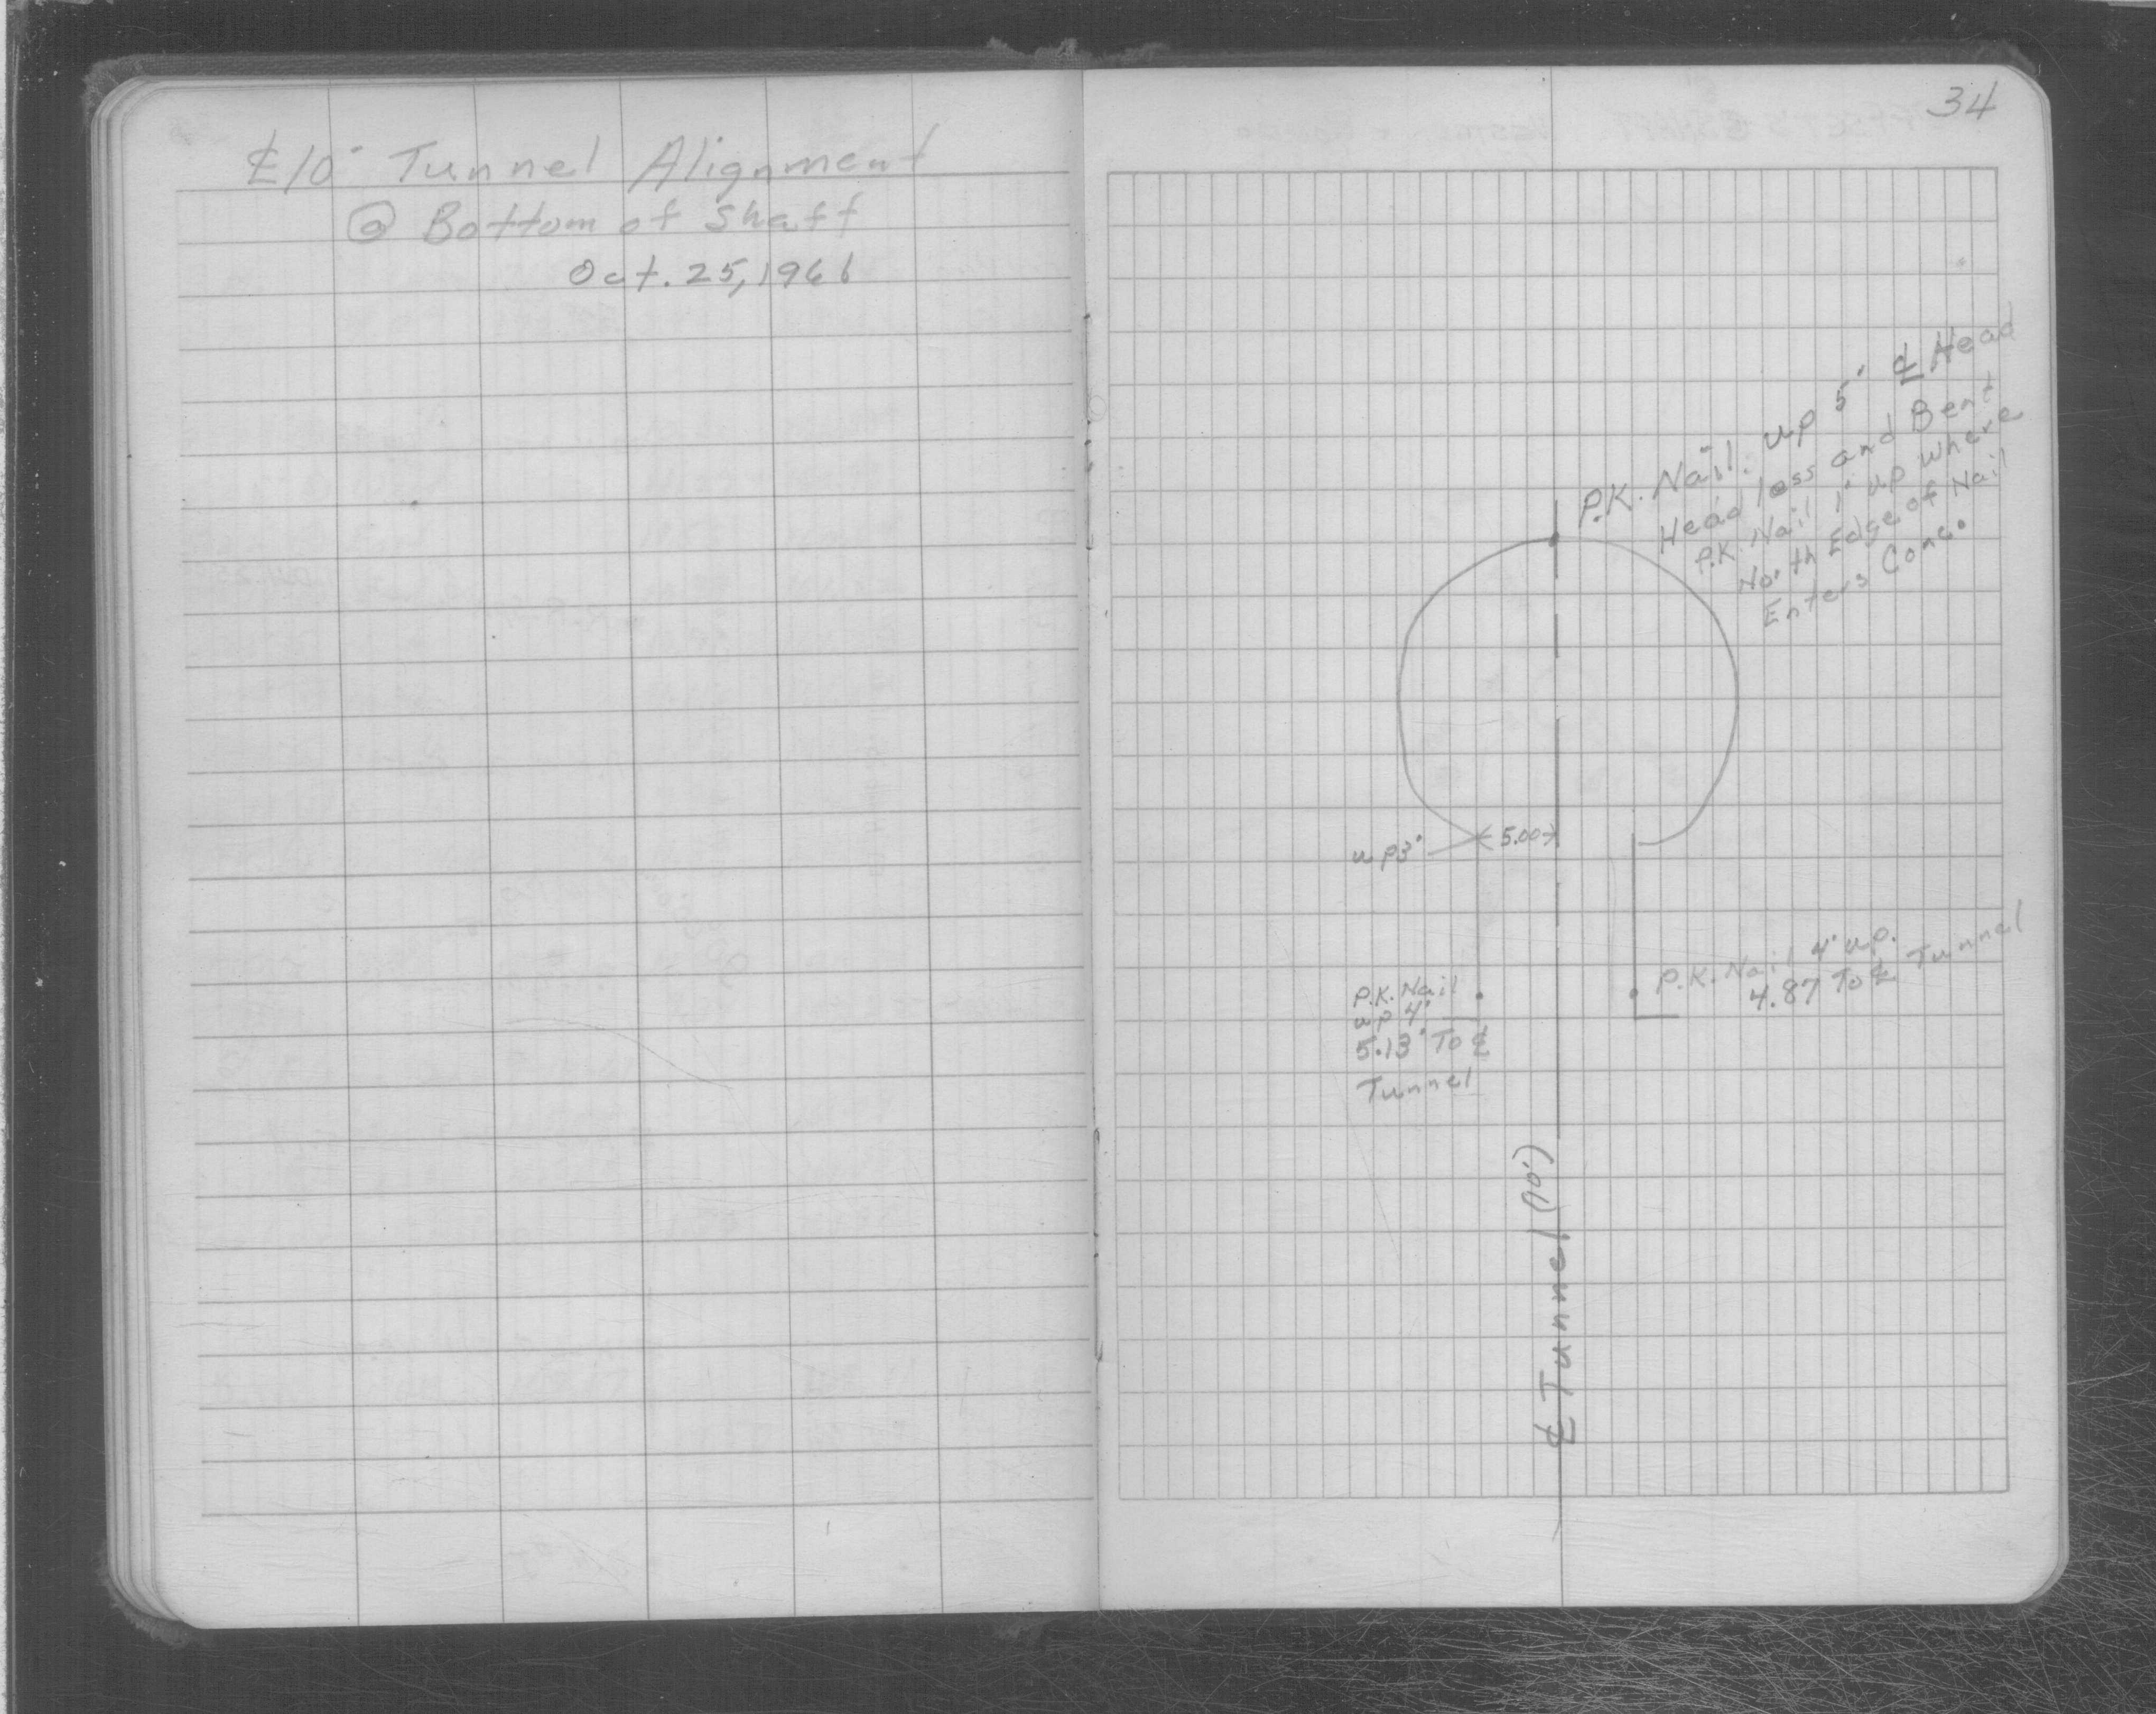 ℄ 10' Tunnel Alignment
@ Bottom of Shaft
Oct. 25, 1966
34
P.K. Nail. up 5' ℄ Head
Head less and Bent
P.K. Nail 1' up where
North Edge of Nail
Enters Conc.
up 3'
5.00
P.K. Nail
up 4'
5.13' To ℄
Tunnel
P.K. Nail 4' up.
4.87 To ℄ Tunnel
℄ Tunnel (10')